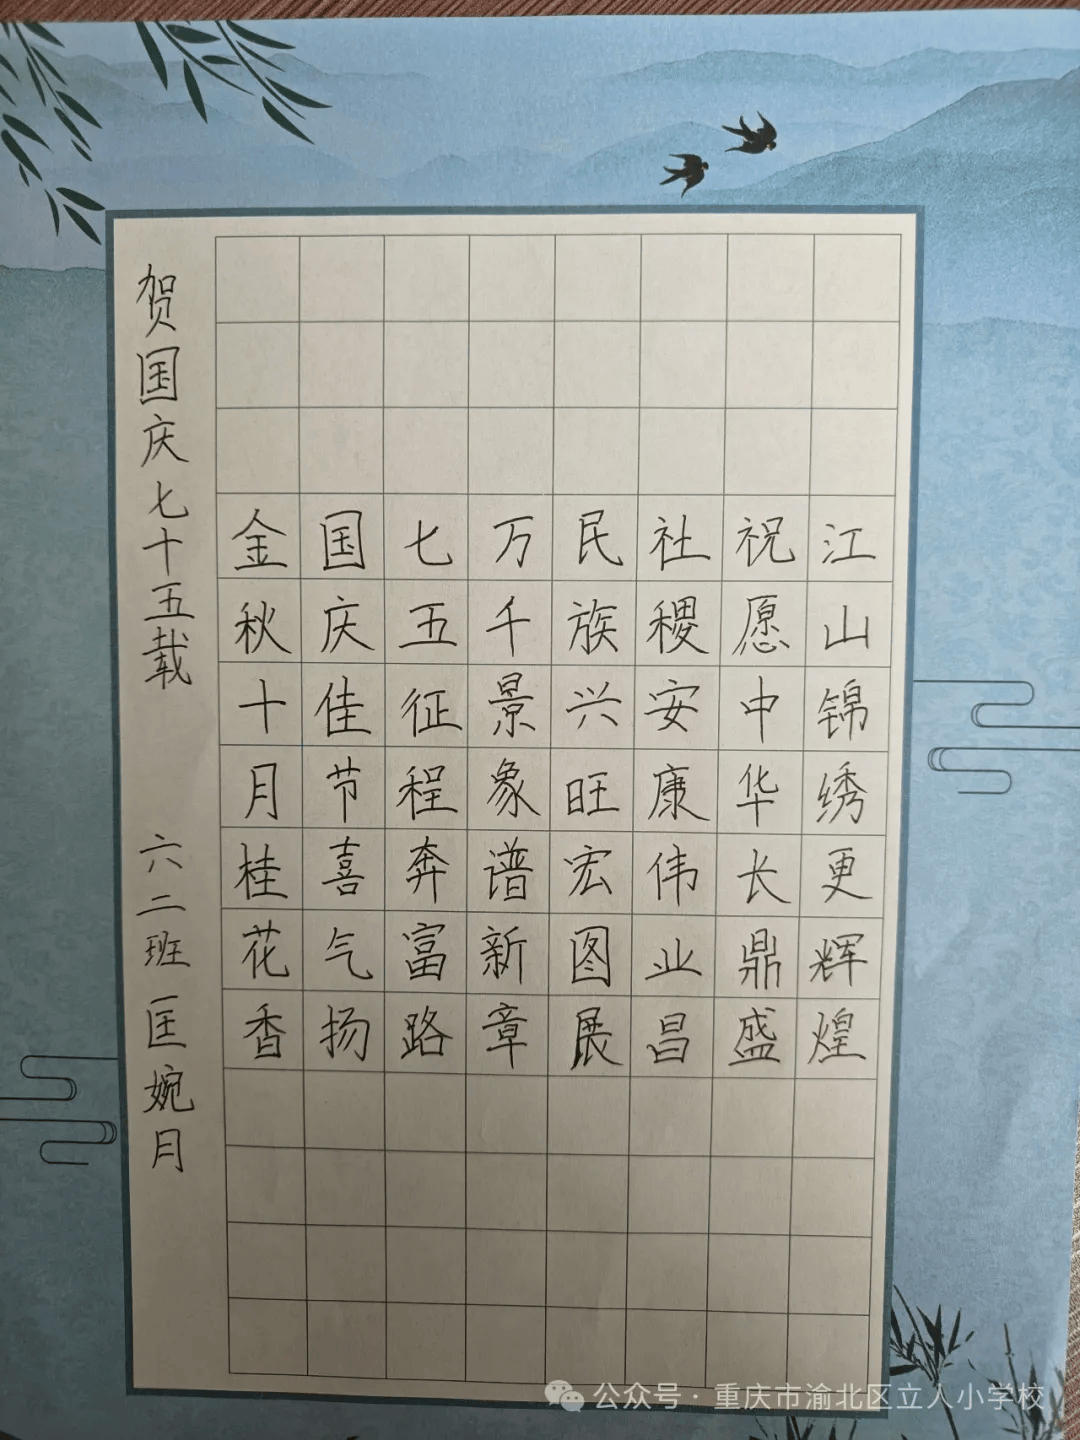 贺国庆七十五载
六二班 匡婉月
金秋十月桂花香
国庆佳节喜气扬
七五征程奔富路
万千景象谱新章
民族兴旺宏图展
社稷安康伟业昌
祝愿中华长鼎盛
江山锦绣更辉煌
公众号·重庆市渝北区立人小学校